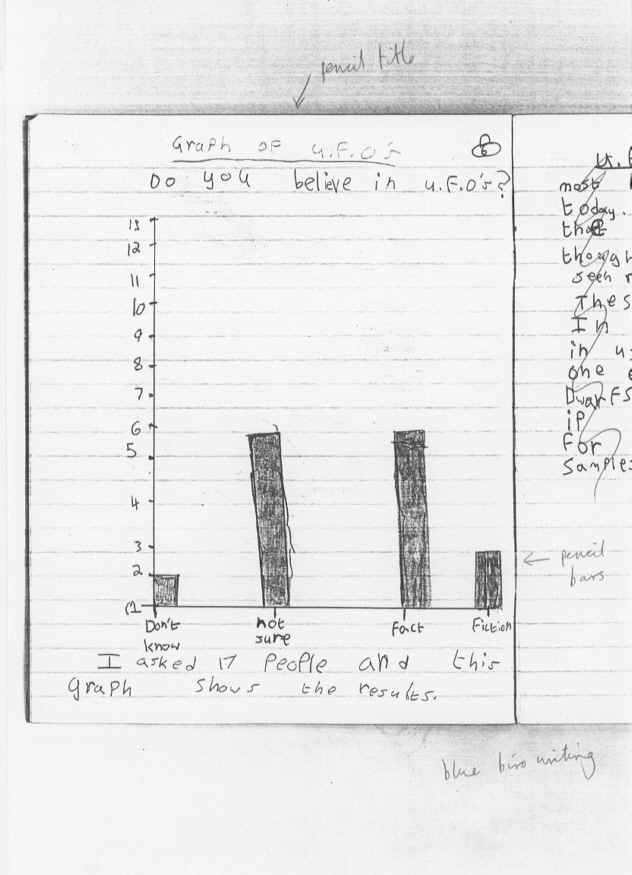 pencil title
Graph of U.F.O's
6
Do you believe in U.F.O's?
13
12
11
10
9
8
7
6
5
4
3
2
(1
Don't know
not sure
fact
Fiction
I asked 17 people and this
Graph shows the results.
pencil
bars
blue biro writing
most
today.
that
though
seen
Thes
In
in u
one
Dwarfs
if
For
Samples